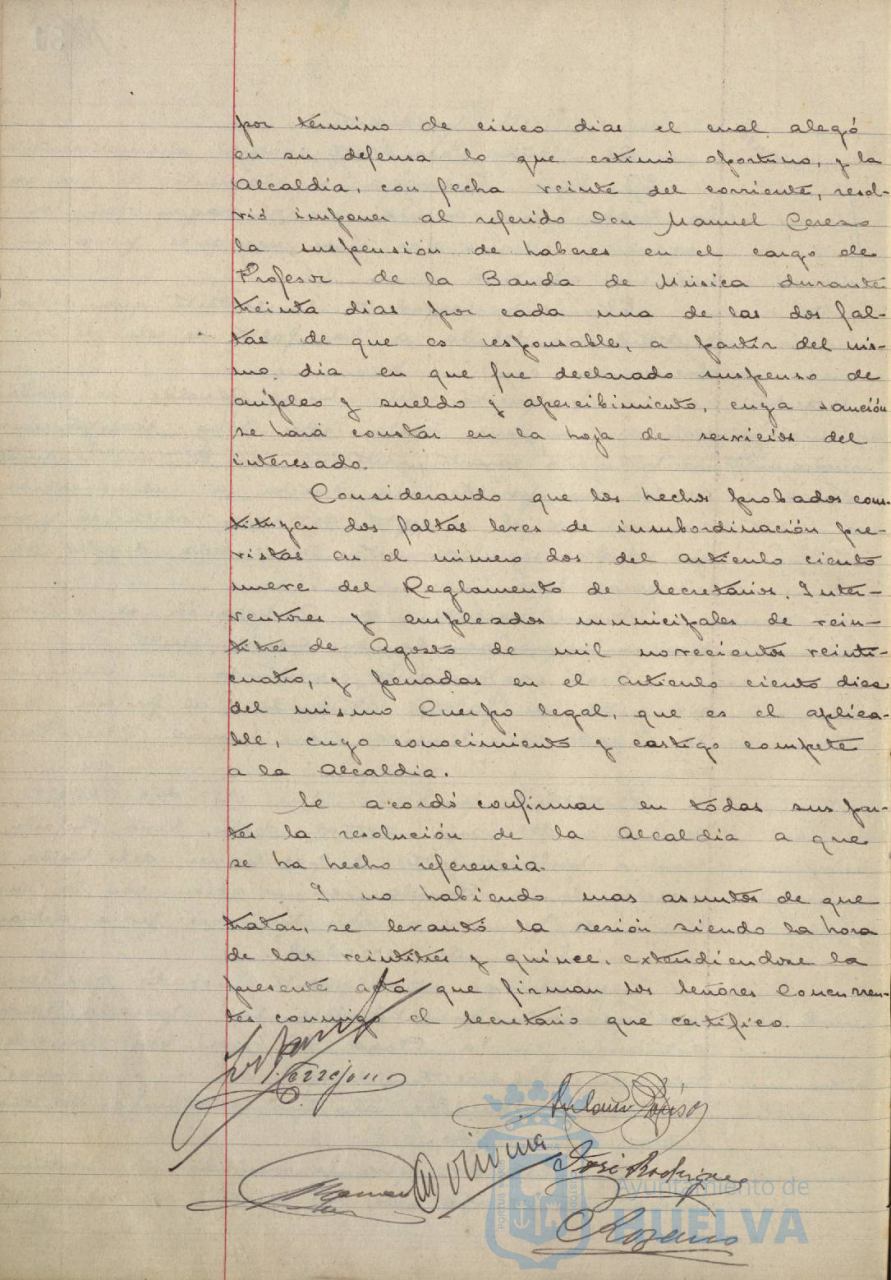 por término de cinco dias el cual alegó
en su defensa lo que estimó oportuno, y la
Alcaldía, con fecha veinte del corriente, resol-
vió imponer al referido Don Manuel Cerezo
la suspensión de haberes en el cargo de
Profesor de la Banda de Música durante
treinta dias por cada una de las dos fal-
tas de que es responsable, a partir del mis-
mo dia en que fue declarado suspenso de
empleo y sueldo y apercibimiento, cuya sanción
se hará constar en la hoja de servicios del
interesado.
Considerando que los hechos probados cons-
tituyen dos faltas leves de insubordinación pre-
vistas en el número dos del artículo ciento
nueve del Reglamento de Secretarios, Inter-
ventores y empleados municipales de vein-
titres de Agosto de mil novecientos veinti-
cuatro, y penadas en el artículo ciento diez
del mismo Cuerpo legal, que es el aplica-
ble, cuyo conocimiento y castigo compete
a la Alcaldía.
Se acordó confirmar en todas sus par-
tes la resolución de la Alcaldía a que
se ha hecho referencia.
Y no habiendo mas asuntos de que
tratar, se levantó la sesión siendo la hora
de las veintitres y quince, extendiendose la
presente acta que firman los Señores Concurren-
tes conmigo el Secretario que certifico.
José Rodríguez
Ayuntamiento de
HUELVA